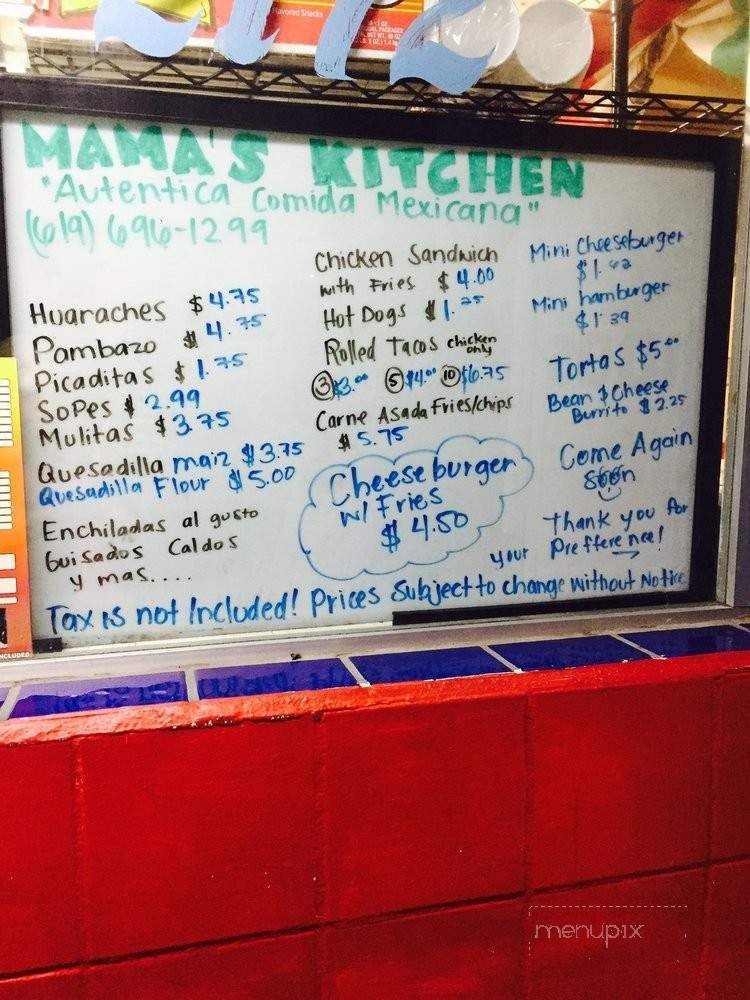 MAMA'S KITCHEN
"Autentica Comida Mexicana"
(619) 696-1299
Huaraches $4.75
Pambazo $4.75
Picaditas $1.75
Sopes $2.99
Mulitas $3.75
Quesadilla maiz $3.75
Quesadilla Flour $5.00
Enchiladas al gusto
Guisados Caldos
y mas....
Chicken Sandwich
with Fries $4.00
Hot Dogs $1.25
Rolled Tacos chicken only
3 $3.00 5 $4.00 10 $6.75
Carne Asada Fries/chips
$5.75
Cheeseburger
w/ Fries
$4.50
Mini Cheeseburger
Mini hamburger
$1.39
Tortas $5.00
Bean & Cheese
Burrito $2.25
Come Again
soon
Thank you for
your Prefference!
Tax is not Included! Prices Subject to change without Notice
Flavored Snacks
menupix